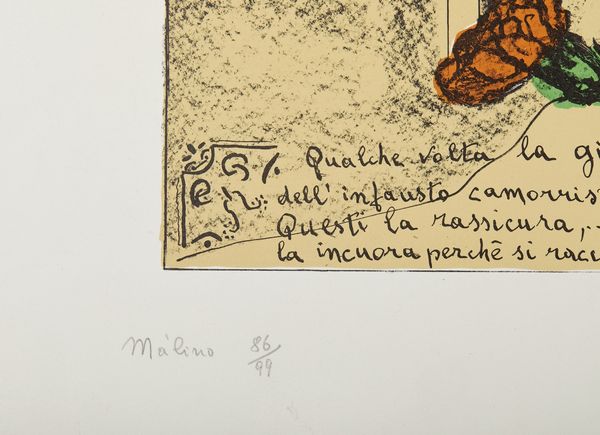 Qualche volta la gi
dell'infausto camorris
Questi la rassicura,..
la incuora perchē si racc
Málino 86/99